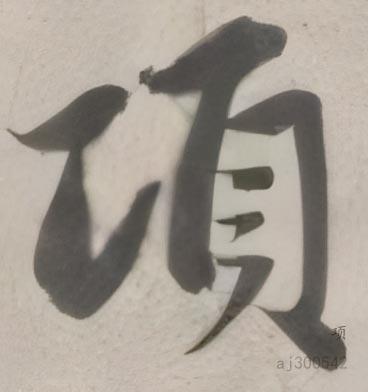 項
项
aj300542